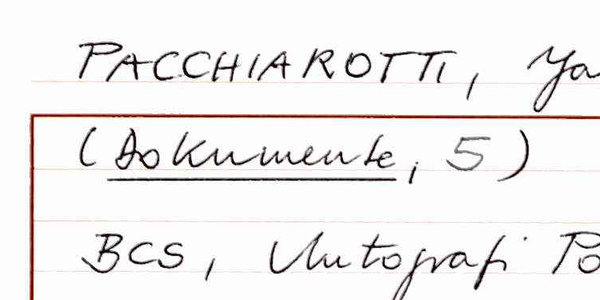 PACCHIAROTTI, Ja
(Dokumente, 5)
BCS, Autografi Po